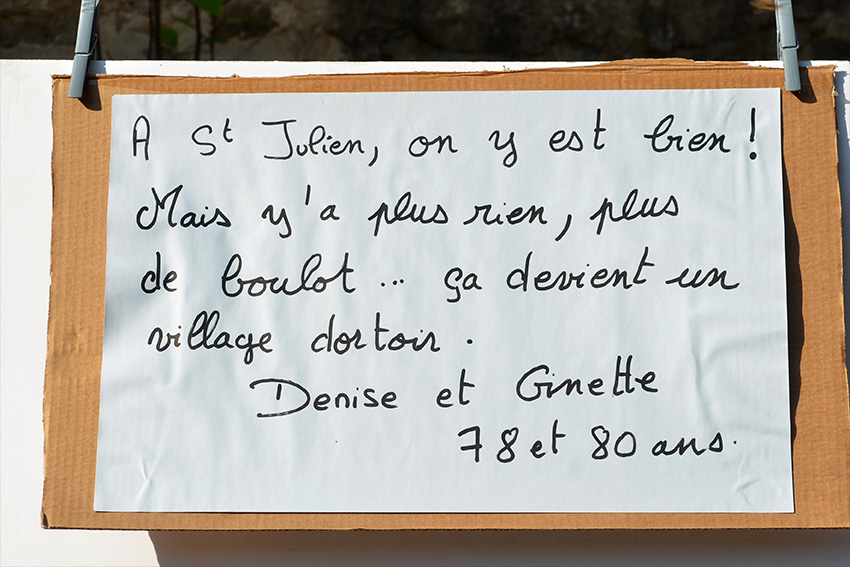 A St Julien, on y est bien !
Mais y'a plus rien, plus
de boulot ... ça devient un
village dortoir.
Denise et Ginette
78 et 80 ans.